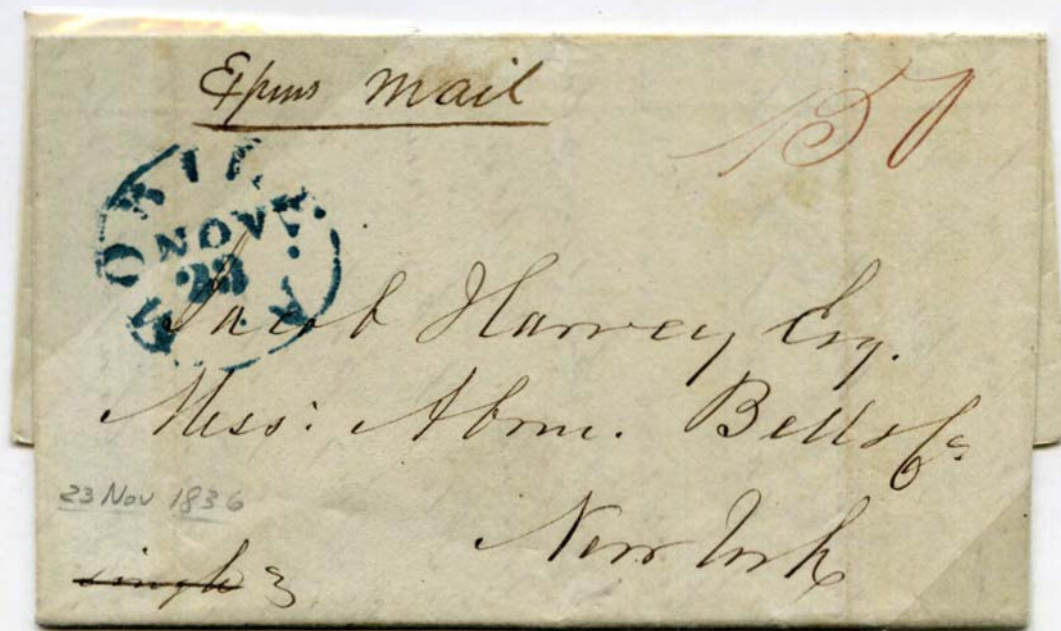 Express Mail
150
MOBILE
NOV
23
ALA.
Jacob Harvey Esq.
Mess: Abrm. Bell & Co
New York
23 Nov 1836
single 3